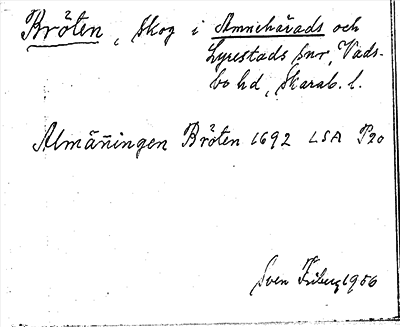 Bröten, skog i Amnehärads och
Lyrestads snr, Vads-
bo hd, Skarab. l.
Almäñingen Bröten 1692 LSA P20
Sven Friberg 1956